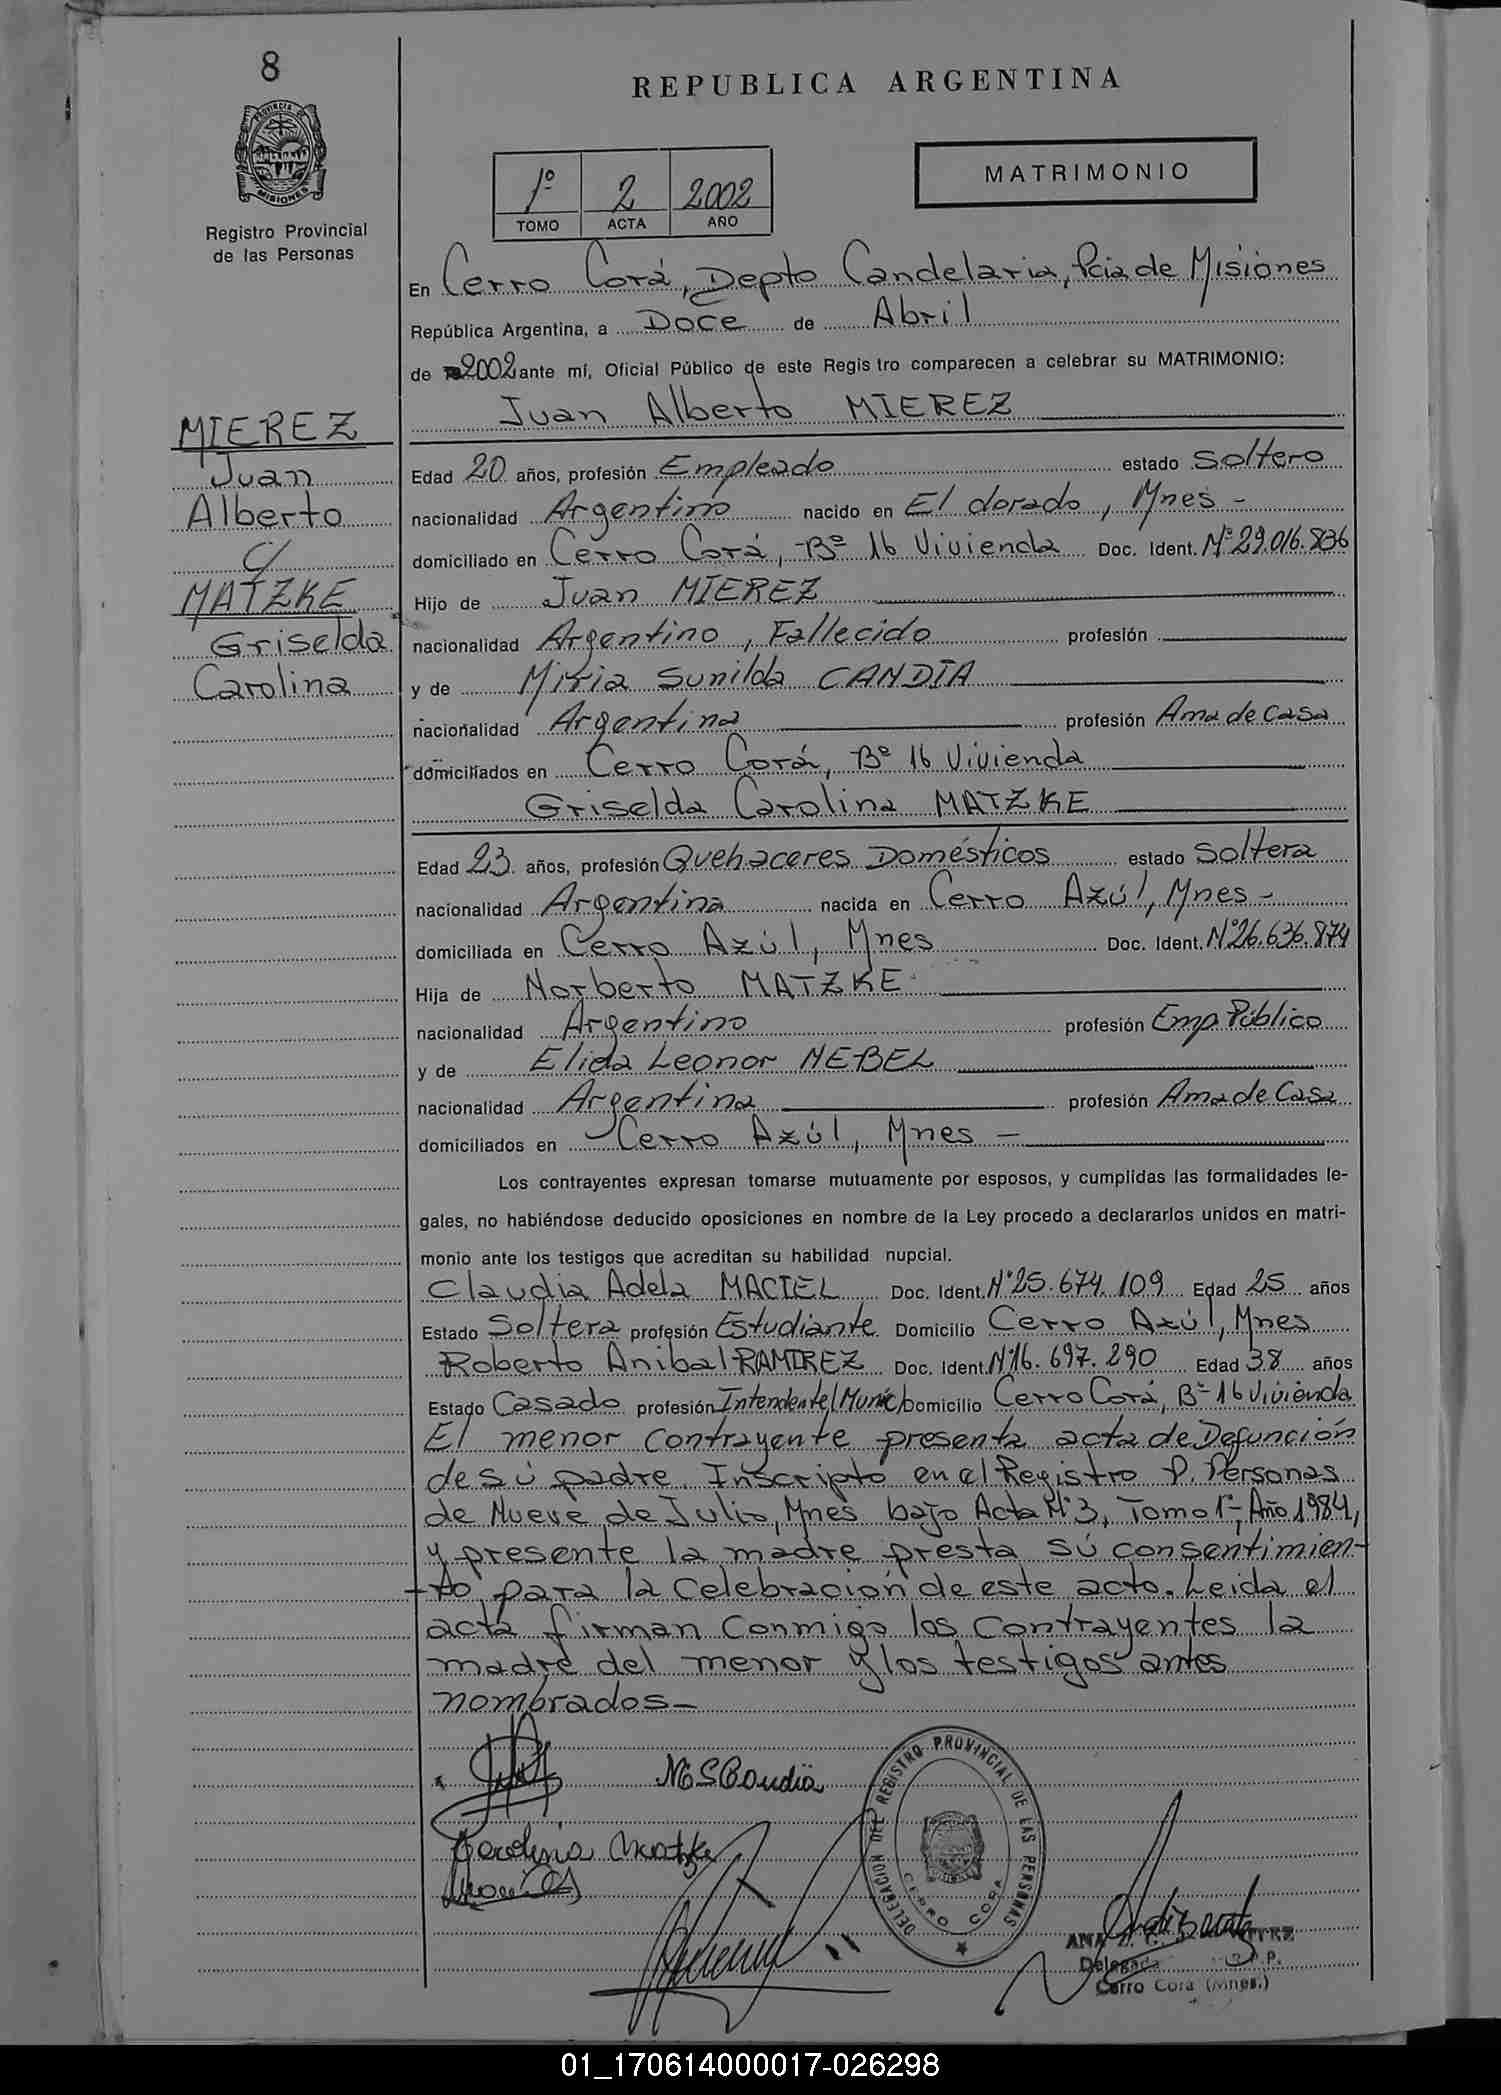 8
PROVINCIA DE
MISIONES
Registro Provincial
de las Personas
REPUBLICA ARGENTINA
1º 2 2002
TOMO ACTA AÑO
MATRIMONIO
En Cerro Corá, Depto Candelaria, Pcia de Misiones
República Argentina, a Doce de Abril
de 2002 ante mí, Oficial Público de este Regis tro comparecen a celebrar su MATRIMONIO:
Juan Alberto MIEREZ
MIEREZ
Juan
Alberto
c/
MATZKE
Griselda
Carolina
Edad 20 años, profesión Empleado estado Soltero
nacionalidad Argentino nacido en El dorado, Mnes -
domiciliado en Cerro Corá, Bº 16 Vivienda Doc. Ident. Nº 29.016.836
Hijo de Juan MIEREZ
nacionalidad Argentino, Fallecido profesión
y de Miria Sunilda CANDIA
nacionalidad Argentina profesión Ama de Casa
domiciliados en Cerro Corá, Bº 16 Vivienda
Griselda Carolina MATZKE
Edad 23 años, profesión Quehaceres Domésticos estado Soltera
nacionalidad Argentina nacida en Cerro Azúl, Mnes -
domiciliada en Cerro Azúl, Mnes Doc. Ident. Nº 26.636.874
Hija de Norberto MATZKE
nacionalidad Argentino profesión Emp. Público
y de Elida Leonor NEBEL
nacionalidad Argentina profesión Ama de Casa
domiciliados en Cerro Azúl, Mnes -
Los contrayentes expresan tomarse mutuamente por esposos, y cumplidas las formalidades le-
gales, no habiéndose deducido oposiciones en nombre de la Ley procedo a declararlos unidos en matri-
monio ante los testigos que acreditan su habilidad nupcial.
Claudia Adela MACIEL Doc. Ident. Nº 25.674.109 Edad 25 años
Estado Soltera profesión Estudiante Domicilio Cerro Azúl, Mnes
Roberto Anibal RAMIREZ Doc. Ident. Nº 16.697.290 Edad 38 años
Estado Casado profesión Intendente/Munic/ Domicilio Cerro Corá, Bº 16 Vivienda
El menor contrayente presenta acta de Defunción
de sú padre. Inscripto en el Registro P. Personas
de Nueve de Julio, Mnes bajo Acta Nº 3, Tomo 1º, Año 1984,
y presente la madre presta sú consentimien-
-to para la Celebración de este acto. Leida el
acta firman conmigo los contrayentes la
madre del menor y los testigos antes
nombrados -
M S Candia
Carolina Matzke
DELEGACION DEL REGISTRO PROVINCIAL DE LAS PERSONAS
CERRO CORA
ANA
Delegada
Cerro Corá (Mnes.)
01_170614000017-026298